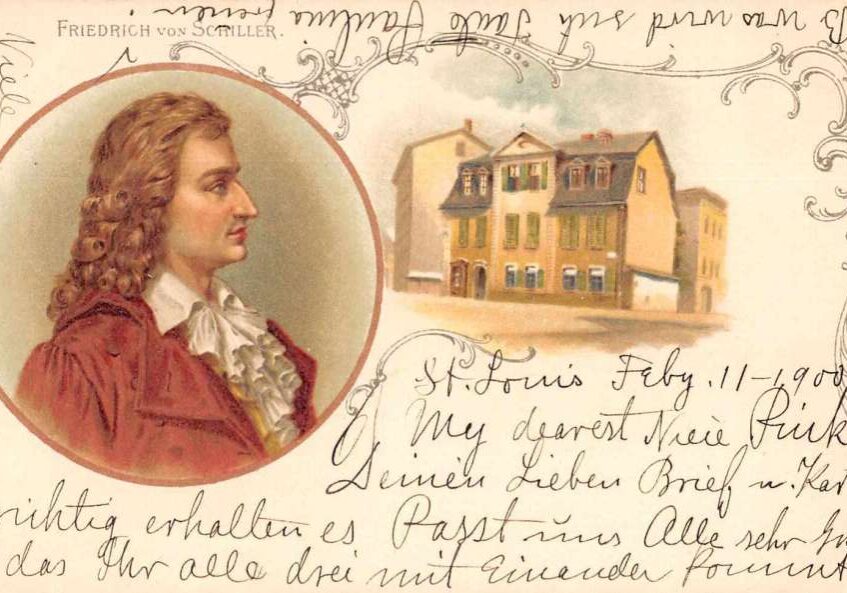 FRIEDRICH VON SCHILLER.
was wird sich Tante Paulina freuen
Viele
St. Louis Feby. 11-1900
My dearest Niece Pink
Deinen Lieben Brief u. Kar
richtig erhalten es Passt uns Alle sehr Gu
das Ihr alle drei mit Einander kommt